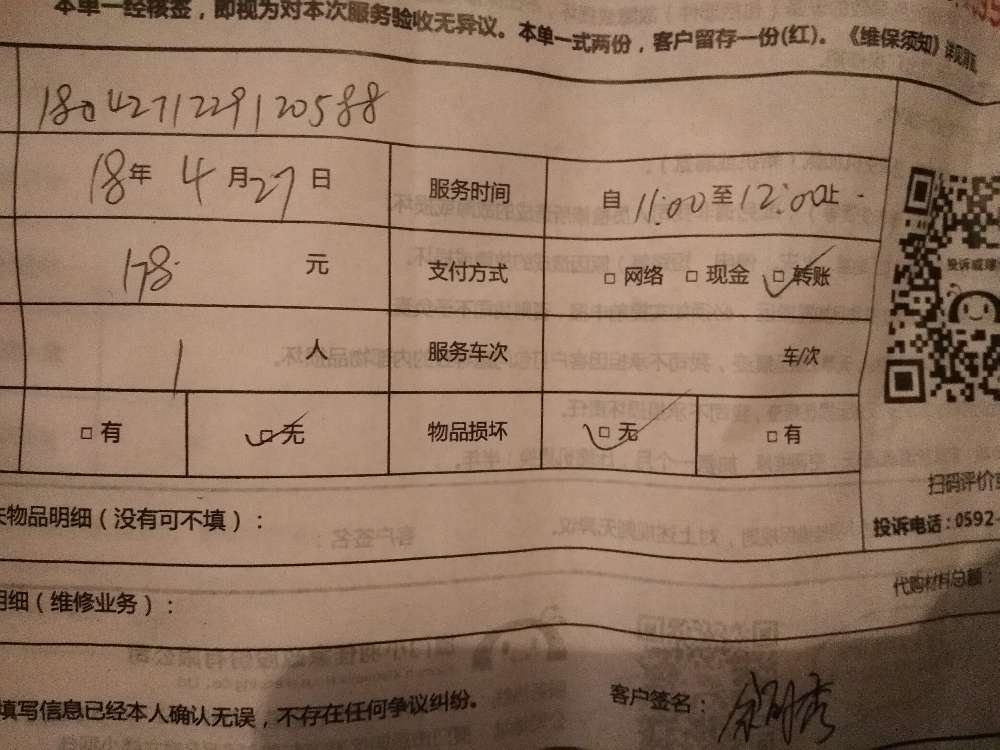 本单一经核签，即视为对本次服务验收无异议。本单一式两份，客户留存一份(红)。《维保须知》
180427122912058８
18年 4月27日 服务时间 自11:00至12:00止
178 元 支付方式 □网络 □现金 □转账
投诉或
1 人 服务车次 车/次
□有 □无 物品损坏 □无 □有
扫码评价
物品明细（没有可不填）：
投诉电话：0592-
代购材料总额：
明细（维修业务）：
填写信息已经本人确认无误，不存在任何争议纠纷。
客户签名：